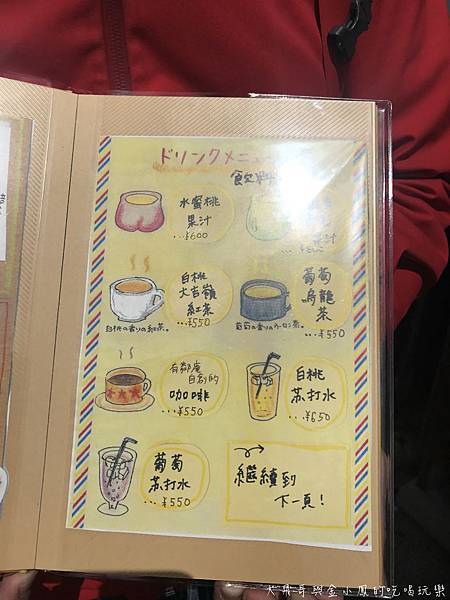 ドリンクメニュー
飲料
水蜜桃
果汁
...¥600
果汁
白桃
大吉嶺
紅茶
...¥550
白桃の香りの紅茶。
葡萄
烏龍
茶
...¥550
葡萄の香りのウーロン茶。
有鄰庵
自創的
咖啡
...¥550
白桃
苏打水
...¥650
葡萄
苏打水
...¥550
繼續到
下一頁!
大飛哥與金小鳳的吃喝玩樂